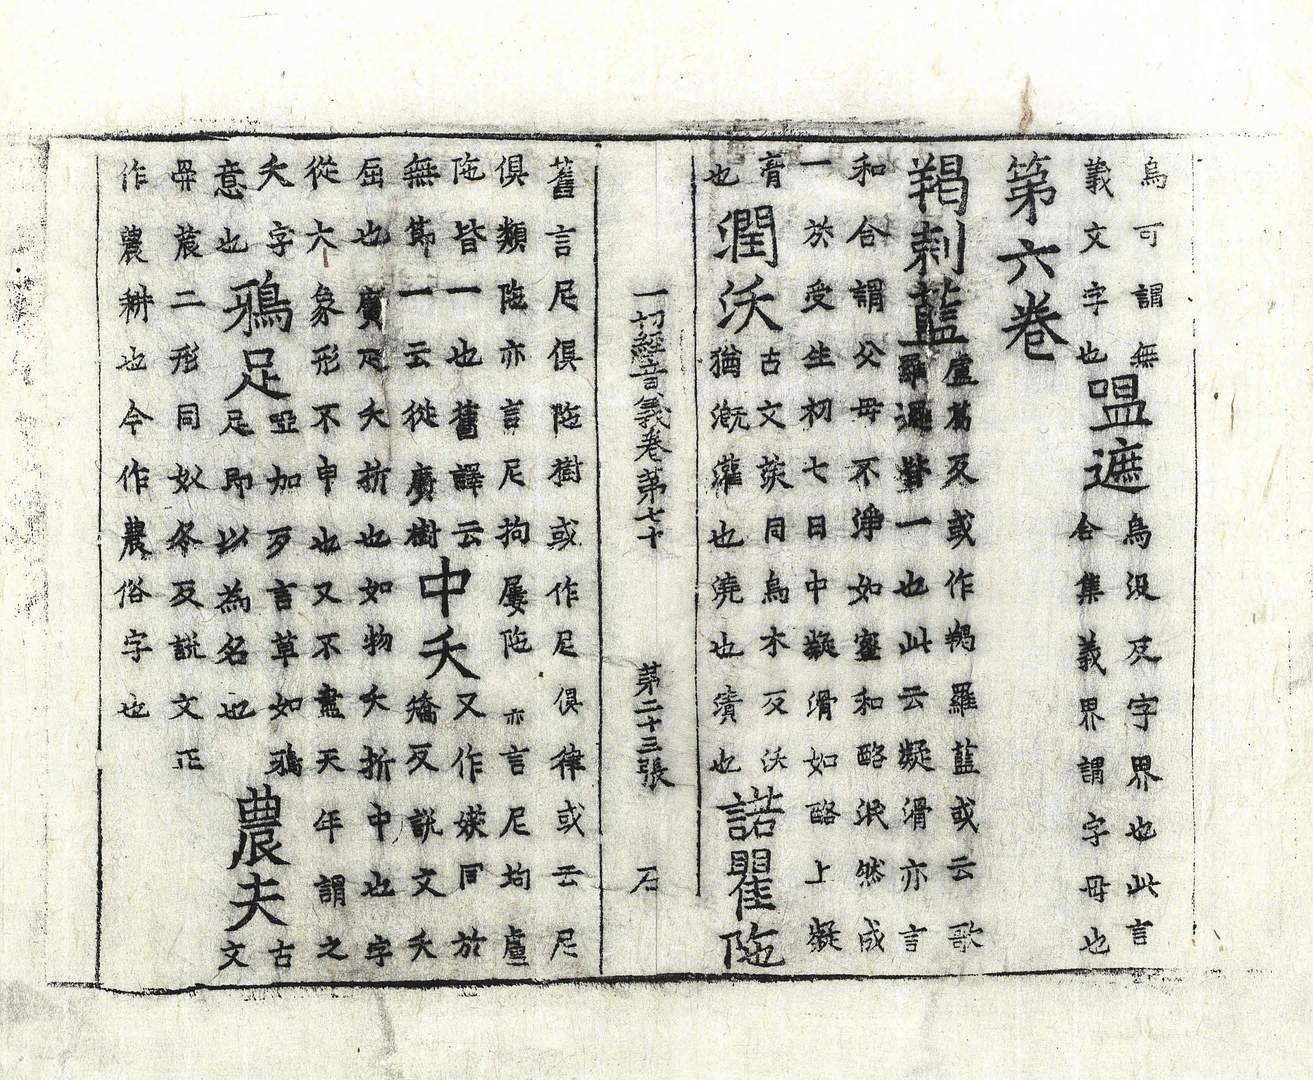 烏可謂無
義文字也
嗢遮
烏沒反字界也此言
合集義界謂字母也
第六卷
羯剌藍
盧葛反或作羯羅藍或云歌
羅邏皆一也此云凝滑亦言
和合謂父母不淨如蜜和酪泯然成
一於受生初七日中凝滑如酪上凝
膏
也
潤沃
古文䒨同烏木反沃
猶溉灌也澆也漬也
諾瞿陁
舊言尼俱陁樹或作尼俱律或云尼
俱類陁亦言尼拘屢陁亦言尼拘盧
陁皆一也舊譯云
無節一云從廣樹
中夭
又作䄏同於
矯反說文夭
屈也廣疋夭折也如物夭折中也字
從大象形不申也又不盡天年謂之
夭字
意也
鵶足
啞加歹言草如鵶
足即以為名也
農夫
古
文
𠭖莀二形同奴冬反說文正
作農耕也今作農俗字也
一切經音義卷第七十 第二十三張 石